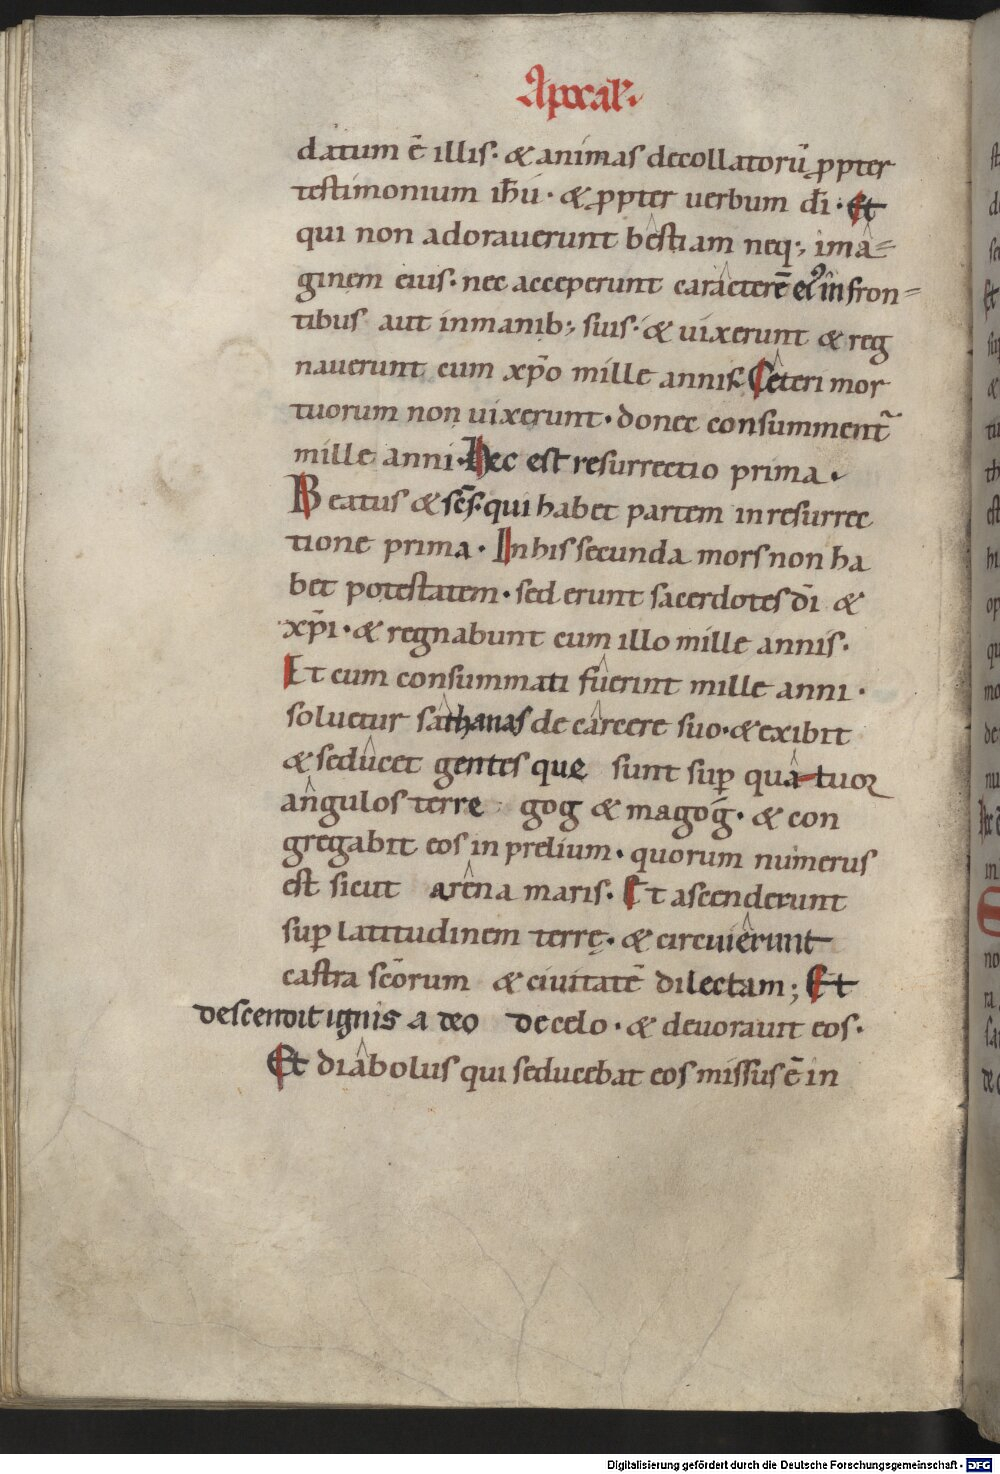 Apocal.
datum ē illis· & animas decollatorū ꝓpter
testimonium ih̄u· & ꝓpter uerbum dī· Et
qui non adorauerunt bestiam neq;, ima=
ginem eius· nec acceperunt caracterē ei᾽ in fron=
tibus aut in manib; suis· & uixerunt & reg
nauerunt cum xp̄o mille annis. Ceteri mor
tuorum non uixerunt· donec consumment᷑
mille anni· Hec est resurrectio prima·
Beatus & sc̄s· qui habet partem in resurrec
tione prima· In his secunda mors non ha
bet potestatem· sed erunt sacerdotes dī &
xp̄i· & regnabunt cum illo mille annis·
Et cum consummati fuerint mille anni·
soluetur sathanas de carcere suo· & exibit
& seducet gentes que sunt sup̄ quatuor
angulos terre gog & magog· & con
gregabit eos in prelium· quorum numerus
est sicut arena maris· Et ascenderunt
sup̄ latitudinem terrę· & circuierunt
castra scōrum & ciuitatē dilectam; Et
descendit ignis a deo de celo· & deuorauit eos·
Et diabolus qui seducebat eos missus ē in
Digitalisierung gefördert durch die Deutsche Forschungsgemeinschaft - DFG